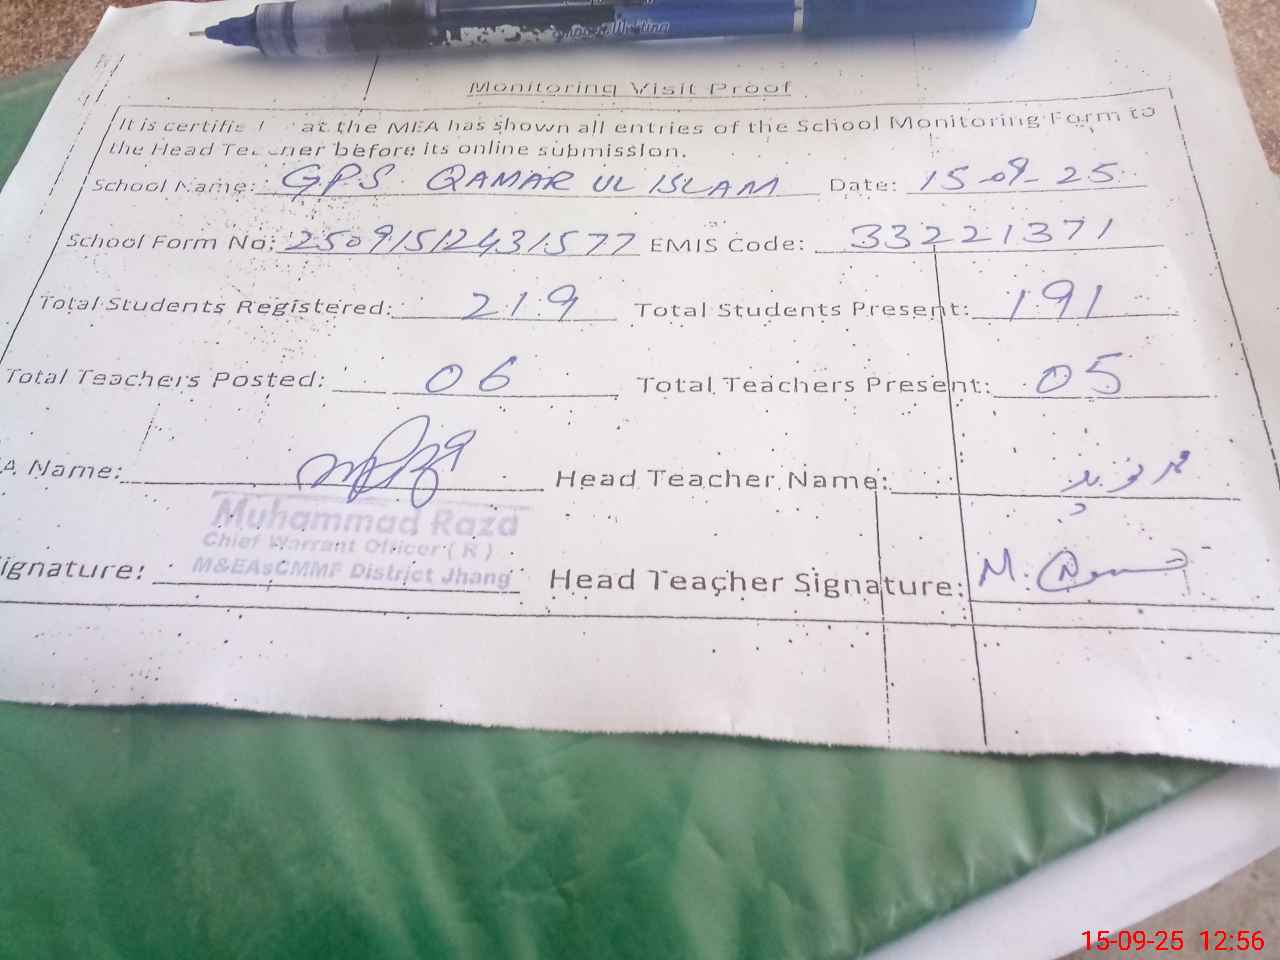 Monitoring Visit Proof
It is certifie at the MEA has shown all entries of the School Monitoring Form to
the Head Teacher before its online submission.
School Name: GPS QAMAR UL ISLAM Date: 15-09-25
School Form No: 25091512431577 EMIS Code: 33221371
Total Students Registered: 219 Total Students Present: 191
Total Teachers Posted: 06 Total Teachers Present: 05
A Name: Head Teacher Name:
Muhammad Raza
Chief Warrant Officer ( R )
M&EAsCMMF District Jhang
ignature: Head Teacher Signature: M.
15-09-25 12:56